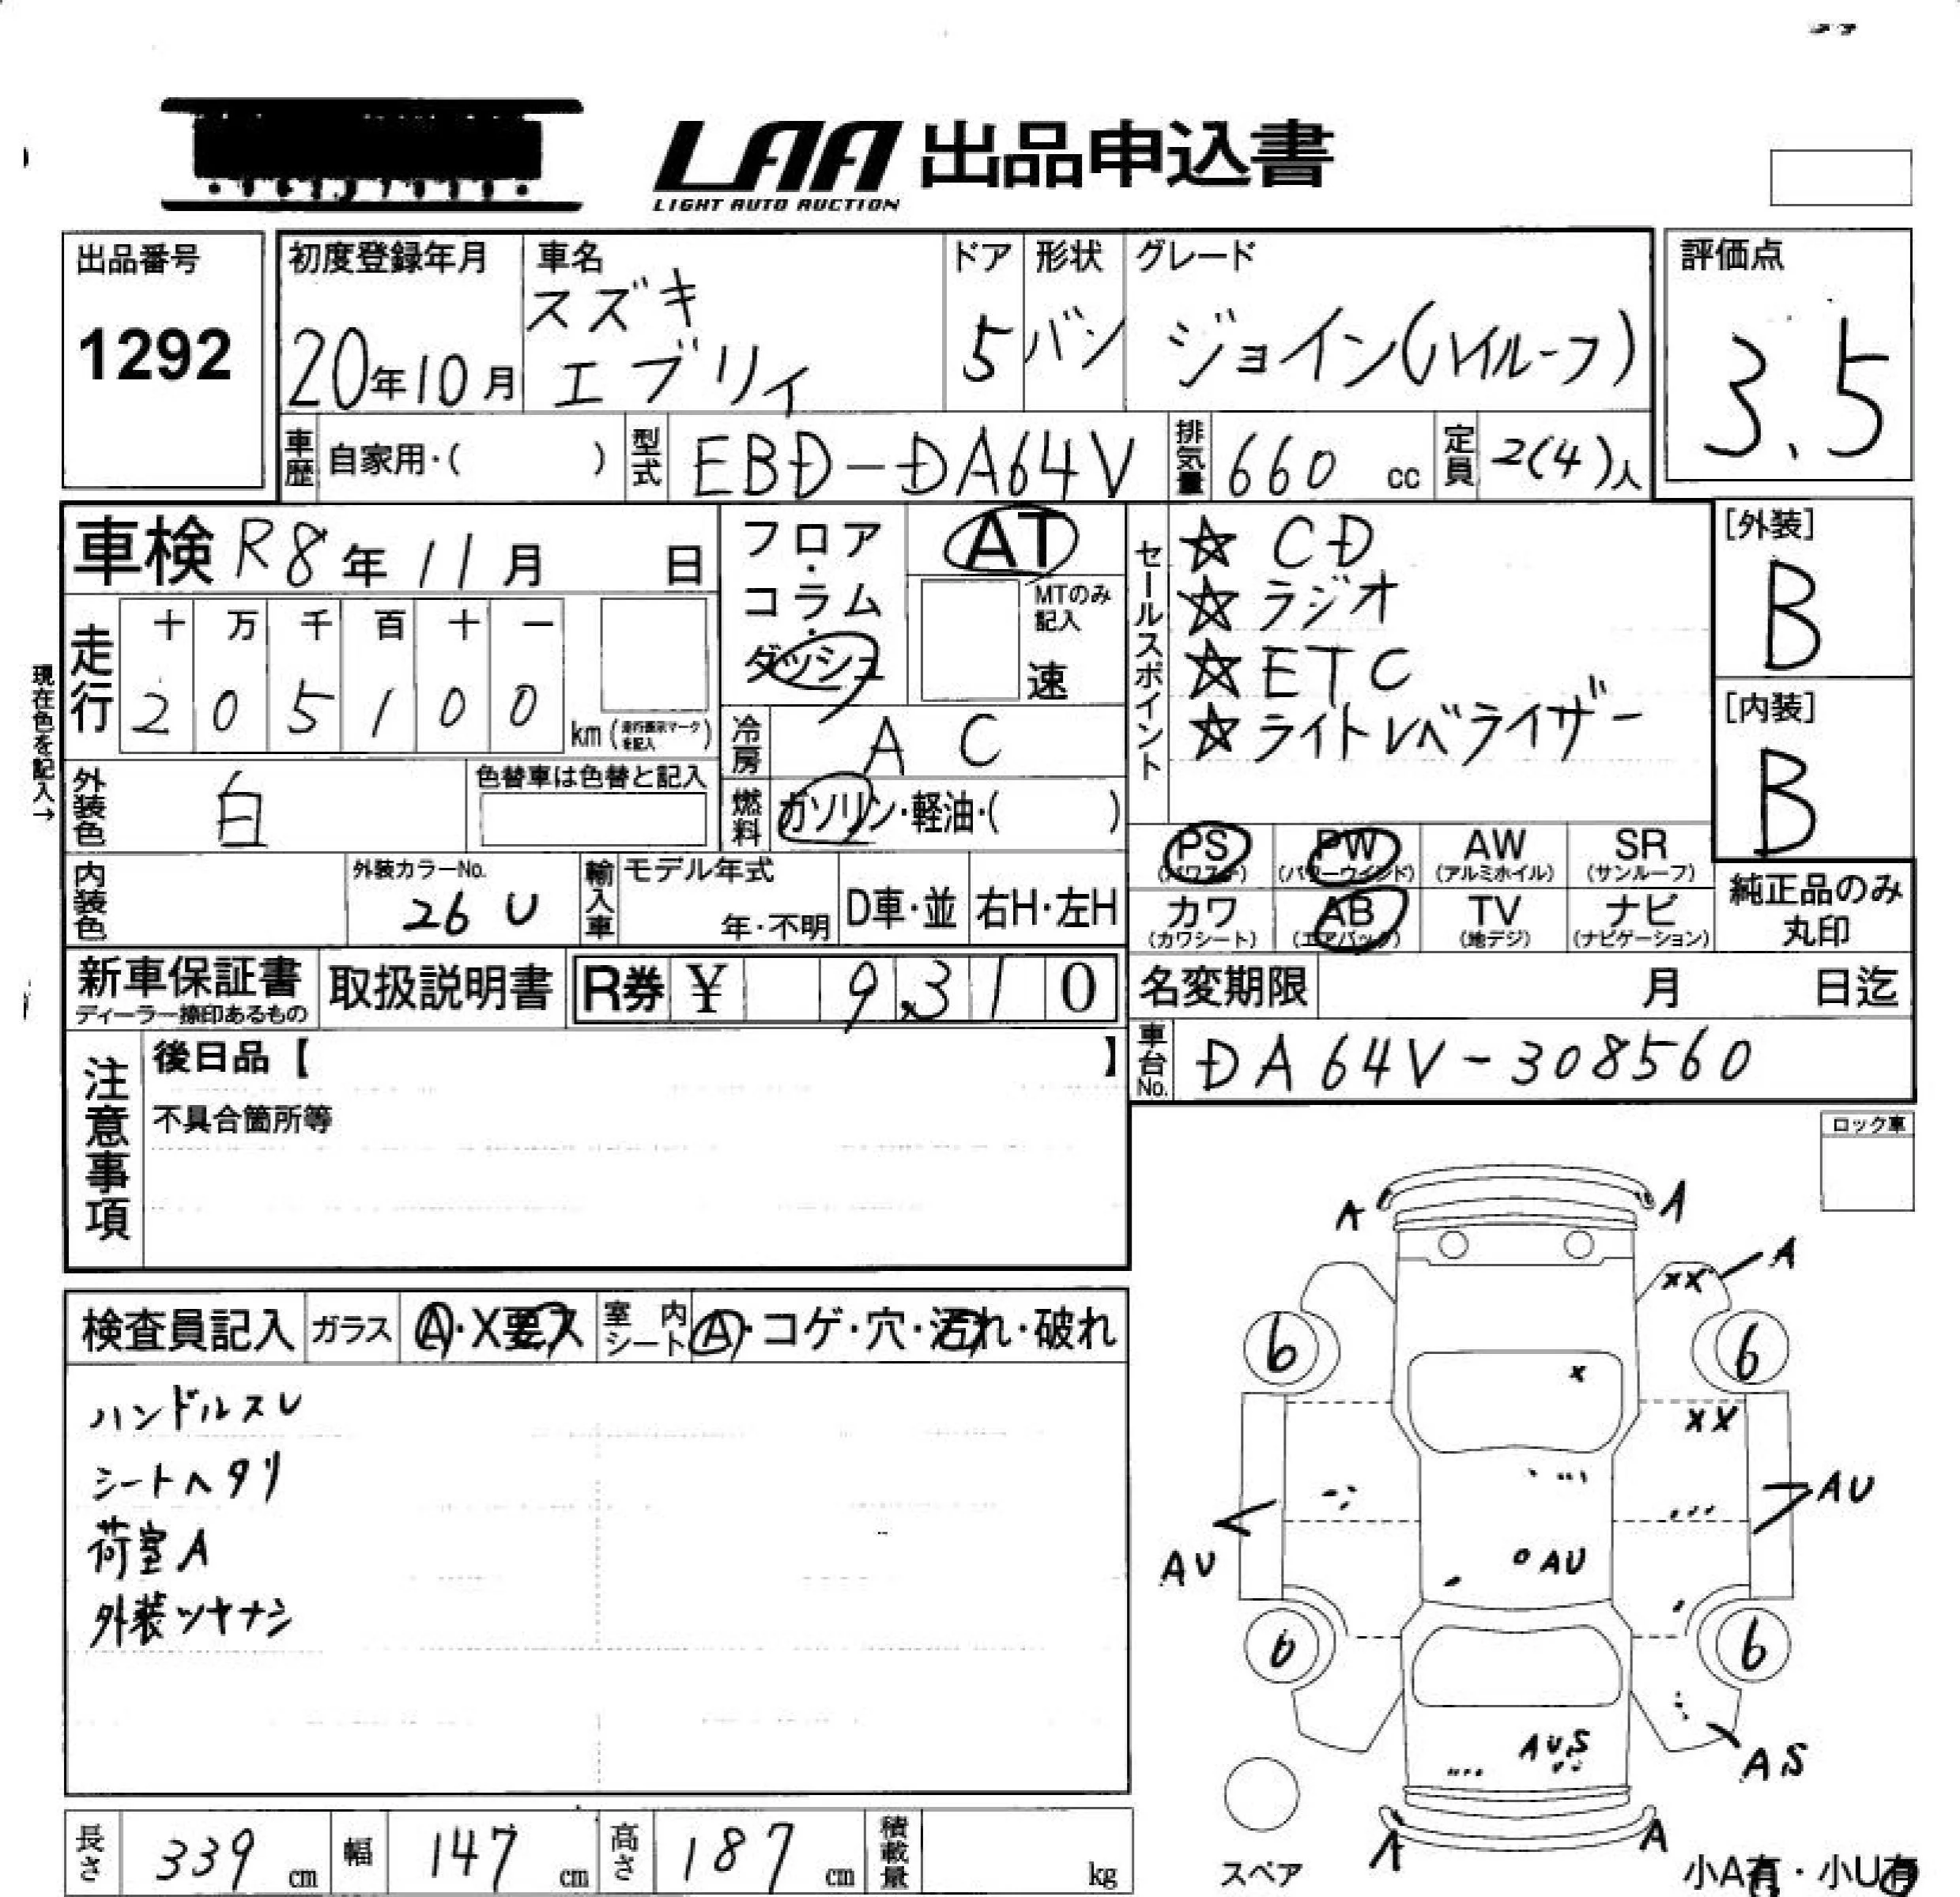 LAA 出品申込書
LIGHT AUTO AUCTION
出品番号
1292
初度登録年月
20年10月
車名
スズキ
エブリィ
ドア
5
形状
バン
グレード
ジョイン(ハイルーフ)
評価点
3.5
車歴 自家用・( )
型式 EBD-DA64V
排気量 660 cc
定員 2(4)人
車検 R8年11月 日
フロア・コラム・ダッシュ
AT
MTのみ記入
速
セールスポイント
☆ CD
☆ ラジオ
☆ ETC
☆ ライトレベライザー
[外装]
B
[内装]
B
現在色を記入→
走行
十 万 千 百 十 一
2 0 5 1 0 0
km (走行表示マークを記入)
冷房 A C
外装色 白
色替車は色替と記入
燃料 ガソリン・軽油・( )
PS (パワステ)
PW (パワーウインド)
AW (アルミホイル)
SR (サンルーフ)
カワ (カワシート)
AB (エアバック)
TV (地デジ)
ナビ (ナビゲーション)
純正品のみ
丸印
内装色
外装カラーNo.
26U
輸入車
モデル年式
年・不明
D車・並
右H・左H
新車保証書
ディーラー捺印あるもの
取扱説明書
R券 ¥ 9,310
名変期限 月 日迄
車台No. DA64V-308560
注意事項
後日品【 】
不具合箇所等
ロック車
検査員記入
ガラス A・X要ス
室内シート A・コゲ・穴・汚れ・破れ
ハンドルスレ
シートヘタリ
荷室A
外装ツヤナシ
A A
A
XX
6 6
X
XX
AU
AU
AU
6 6
AUS
AS
A A
スペア
小A有・小U有
長さ 339 cm
幅 147 cm
高さ 187 cm
積載量 kg